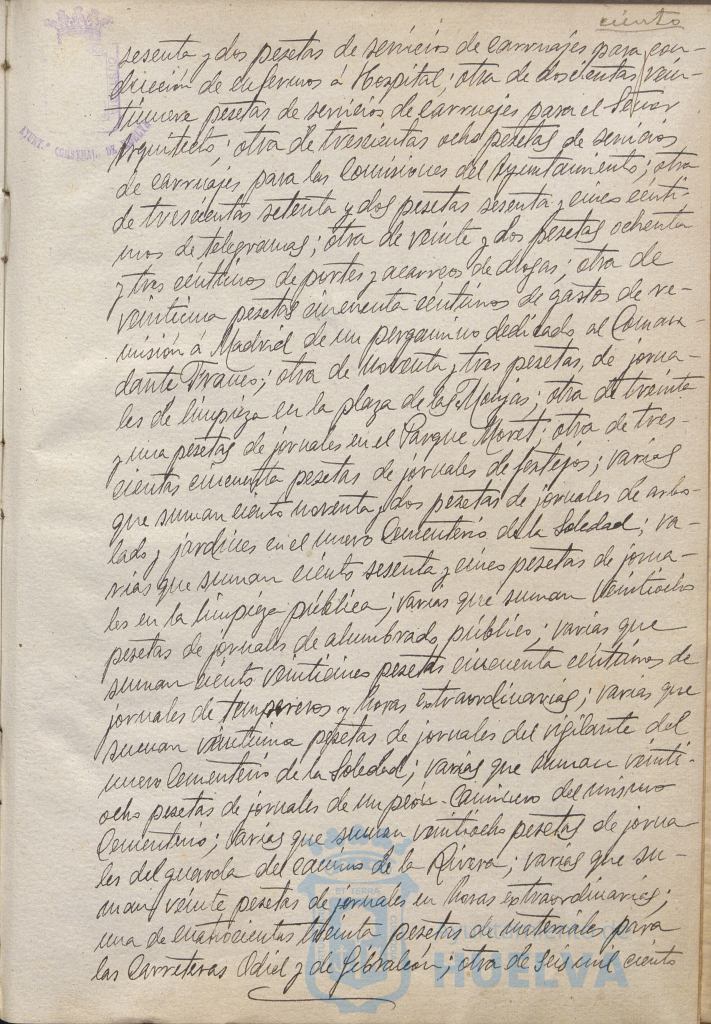 ciento
sesenta y dos pesetas de servicios de carruajes para con-
ducción de enfermos á Hospital; otra de doscientas vein-
tinueve pesetas de servicios de carruajes para el Señor
Arquitecto; otra de trescientas ocho pesetas de servicios
de carruajes para las Comisiones del Ayuntamiento; otra
de trescientas setenta y dos pesetas sesenta y cinco cénti-
mos de telegramas; otra de veinte y dos pesetas ochenta
y tres céntimos de portes y acarreos de drogas; otra de
veintiuna pesetas cincuenta céntimos de gastos de re-
misión á Madrid de un pergamino dedicado al Coman-
dante Franco; otra de noventa y tres pesetas, de jorna-
les de limpieza en la plaza de las Monjas; otra de treinta
y una pesetas de jornales en el Parque Moret; otra de tres-
cientas cincuenta pesetas de jornales de festejos; varias
que suman ciento noventa y dos pesetas de jornales de arbo-
lado y jardines en el nuevo Cementerio de la Soledad; va-
rias que suman ciento sesenta y cinco pesetas de jorna-
les en la limpieza pública; varias que suman veintiocho
pesetas de jornales de alumbrado público; varias que
suman ciento veinticinco pesetas cincuenta céntimos de
jornales de temporeros y horas extraordinarias; varias que
suman veintiuna pesetas de jornales del vigilante del
nuevo Cementerio de la Soledad; varias que suman veinti-
ocho pesetas de jornales de un peón-caminero del mismo
Cementerio; varias que suman veintiocho pesetas de jorna
les del guarda del camino de la Rivera; varias que su-
man veinte pesetas de jornales en horas extraordinarias;
una de cuatrocientas treinta pesetas de materiales para
las Carreteras Odiel y de Gibraleón; otra de seis mil ciento
HUELVA